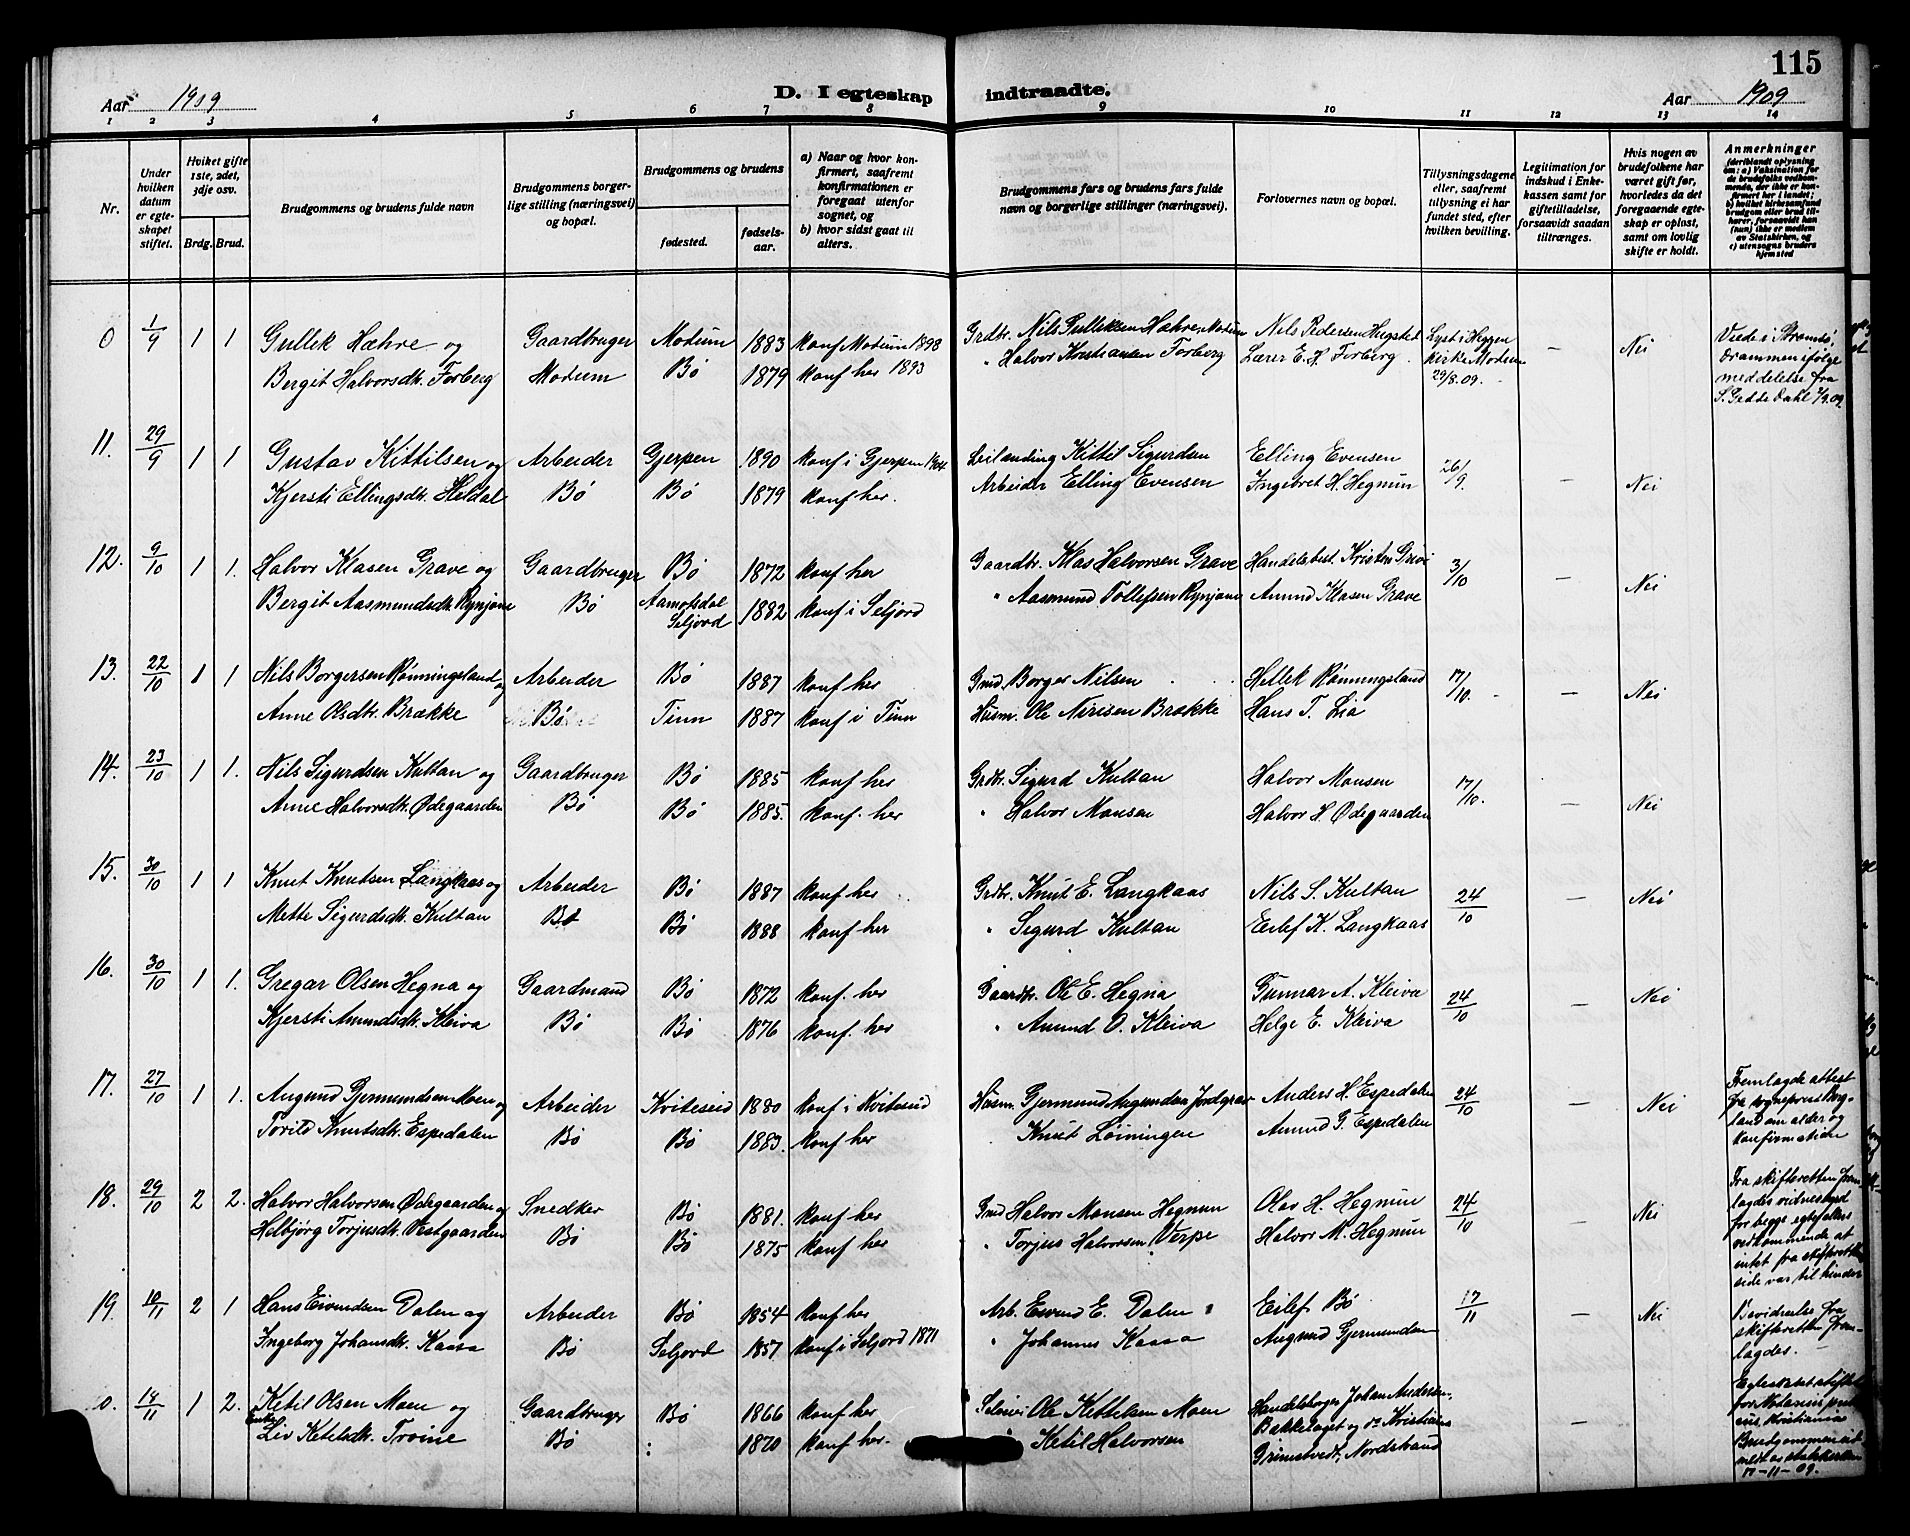 115
Aar 1909
D. I egteskap indtraadte.
Aar 1909
1 2 3 4 5 6 7 8 9 10 11 12 13 14
Nr.
Under hvilken datum er egteskapet stiftet.
Hvilket gifte 1ste, 2det, 3dje osv.
Brdg. Brud.
Brudgommens og brudens fulde navn
Brudgommens borgerlige stilling (næringsvei) og bopæl.
Brudgommens og brudens
fødested.
fødselsaar.
a) Naar og hvor konfirmert, saafremt konfirmationen er foregaat utenfor sognet, og
b) hvor sidst gaat til alters.
Brudgommens fars og brudens fars fulde navn og borgerlige stillinger (næringsvei).
Forlovernes navn og bopæl.
Tillysningsdagene eller, saafremt tillysning ei har fundet sted, efter hvilken bevilling.
Legitimation for indskud i Enkekassen samt for giftetilladelse, forsaavidt saadan tiltrænges.
Hvis nogen av brudefolkene har været gift før, hvorledes da det foregaaende egteskap er opløst, samt om lovlig skifte er holdt.
Anmerkninger (deriblandt oplysning om: a) Vaksination for de brudefolks vedkommende, der ikke er konfirmert her i landet; b) hvilket kirkesamfund brudgom eller brud tilhører, forsaavidt han (hun) ikke er medlem av Statskirken, og c) utensogns bruders hjemsted
0 1/9 1 1 Gullek Hæhre og Gaardbruger Modum 1883 konf Modum 1898 Grdbr. Nils Gulliksen Hæhre, Modum Nils Pedersen Hugstet Lyst i Heggen — Nei Viede i Strømsø,
Bergit Halvorsdt. Forberg Modum Bø 1879 konf her 1893 " Halvor Kristiansen Forberg Lærer E. H. Forberg. kirke Modum 29/8.09. Drammen ifølge meddelelse fra S. Gedde Dahl 2/9.09.
11. 29/9 1 1 Gustav Kittilsen og Arbeider Gjerpen 1890 konf i Gjerpen 1904. Leilending Kittil Sigurdsen Elling Evensen 26/9. — Nei
Kjersti Ellingsdt. Heldal Bø Bø 1879 konf her. Arbeider Elling Evensen Ingebret H. Hegnun
12. 9/10 1 1. Halvor Klasen Grave og Gaardbruger Bø 1872 konf her Gaardbr. Klas Halvorsen Grave Handelsbest. Kristen Grivi 3/10 — Nei
Bergit Aasmundsdt. Rynjane Bø Aamotsdal Seljord 1882 konf i Seljord " Aasmund Tollefsen Rynjane Amund Klasen Grave
13. 22/10 1 1 Nils Borgersen Rønningsland og Arbeider Bø 1887 konf her Gmd. Borger Nilsen Hellek Rønningsland 17/10. — Nei
Anne Olsdt. Brække Bø Tinn 1887 konf i Tinn Husm. Ole Nirisen Brække Hans T. Lia
14. 23/10 1 1. Nils Sigurdsen Kultan og Gaardbruger Bø 1885 konf her Grdbr. Sigurd Kultan Halvor Monsen 17/10. — Nei
Anne Halvorsdt. Ødegaarden Bø Bø 1885. konf. her " Halvor Monsen Halvor H. Ødegaarden
15. 30/10 1 1 Knut Knutsen Langkaas og Arbeider Bø 1887 konf her Grdbr. Knut E. Langkaas Nils S. Kultan 24/10 — Nei
Mette Sigurdsdt. Kultan Bø Bø 1888 konf her " Sigurd Kultan Eilef K. Langkaas
16. 30/10 1 1. Gregar Olsen Hegna og Gaardmand Bø 1872 konf. her Gaardbr. Ole E. Hegna Gunnar A. Kleiva 24/10 — Nei
Kjersti Amundsdt. Kleiva Bø Bø 1876 konf. her " Amund O. Kleiva Helge E. Kleiva
17. 27/10 1 1. Augund Gjermundsen Moen og Arbeider Kviteseid 1880 konf. i Kviteseid Husm. Gjermund Augundsen Jordgrav Anders H. Espedalen 24/10 — Nei Fremlagde attest
Torild Knutsdt. Espedalen Bø Bø 1883. konf her Knut Løiningen Amund G. Espedalen fra sogneprest Borgland om alder og konfirmation
18. 29/10 2 2. Halvor Halvorsen Ødegaarden og Snedker Bø 1881. konf her Gmd Halvor Monsen Hegnun Olav H. Hegnun 24/10 — Nei Fra skifteretten fremlagdes vidnesbyrd
Helbjørg Torjusdt. Vestgaarden Bø Bø 1875 konf her " Torjus Halvorsen Verpe Halvor M. Hegnun for begge egtefellers vedkommende at intet fra skifterettens side var til hinder
19. 18/11 2 1 Hans Eivindsen Dalen og Arbeider Bø 1854 konf her Arb. Eivind E. Dalen Eilef Bø 17/11 — Nei Bevidnelse fra
Ingeborg Johansdt. Kaasa Bø Seljord 1857 konf i Seljord 1871 " Johannes Kaasa Augund Gjermundsen skifteretten fremlagdes. —
0. 18/11 1 2. Ketil Olsen Moen og Gaardbruger Bø 1866 konf her Selveier Ole Kettelsen Moen Handelsborger Johan Andersen, — Egteskabet stiftet
Enke Liv Ketelsdt. Troine Bø : 1870 konf her. " Ketil Halvorsen Bakkelaget og do Kristians Grimstvedt, Nordstrand for Notarius publicus, Kristiania
17-11-09.